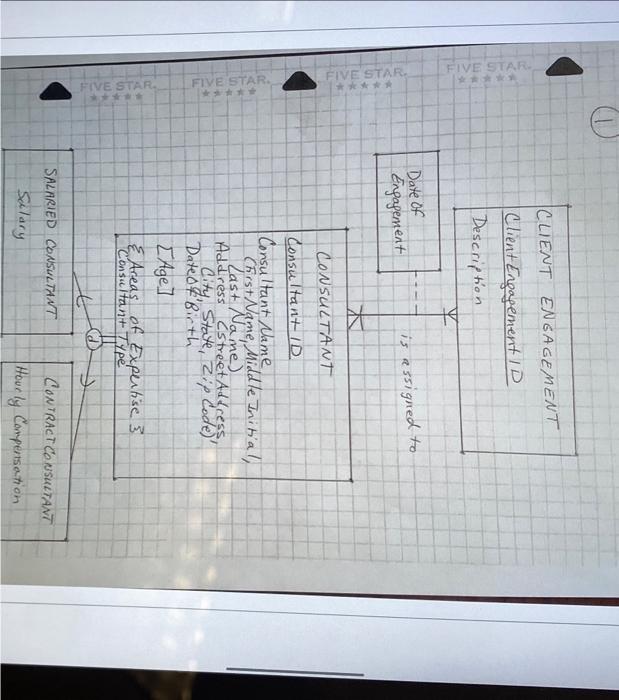 1
FIVE STAR.
FIVE STAR.
FIVE STAR.
FIVE STAR.
CLIENT ENGAGEMENT
Client Engagement ID
Description
Date Of
Engagement
is assigned to
CONSULTANT
Consultant ID
Consultant Name
(First Name, Middle Initial,
Last Name)
Address (Street Address,
City, State, Zip Code)
Date Of Birth
[Age]
{Areas of Expertise}
Consultant Type
d
SALARIED CONSULTANT
Salary
CONTRACT CONSULTANT
Hourly Compensation